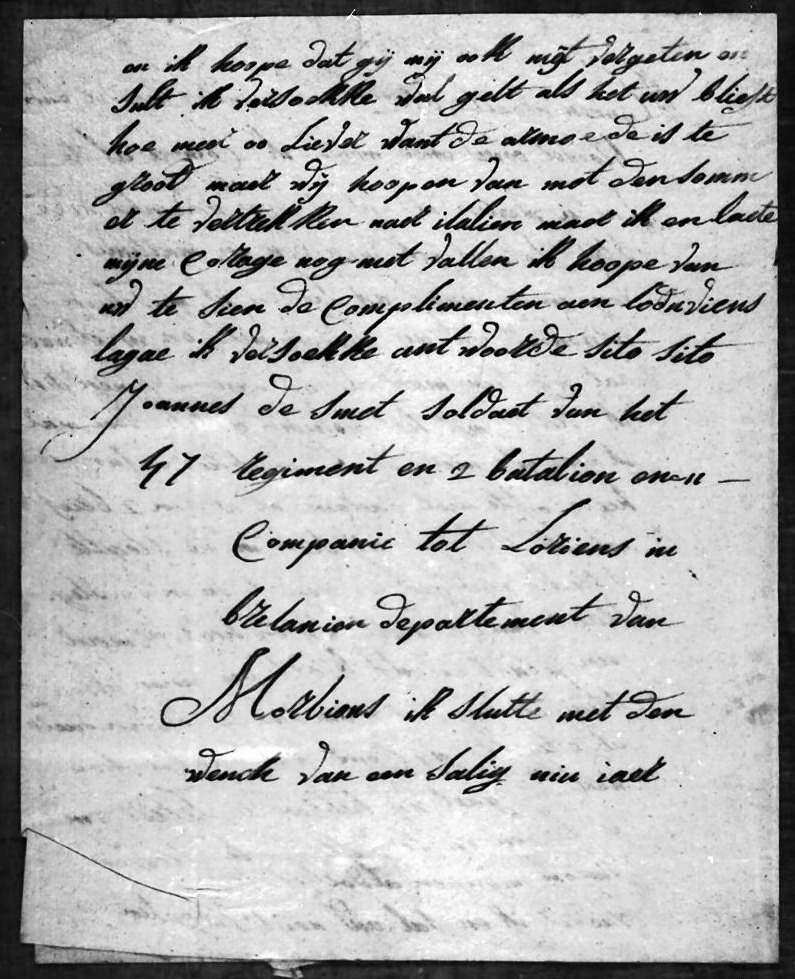 en ik hoope dat gij mij ook niet vergeten en
sult ik versoekke wat gelt als het uw blieft
hoe meer oo liever want de armoede is te
groot maer wij hoopen van met den somm
er te vertrekken naer italien maer ik en laete
mijne Corage nog niet vallen ik hoope van
uw te sien de Complimenten aen loduviens
lagae ik versoekke antwoorde sito sito
Joannes de smet soldaet van het
47 regiment en 2 batalion en
Companie tot Loriens in
bretanien departement van
Morbians ik slutte met den
wench van een salig niu iaer